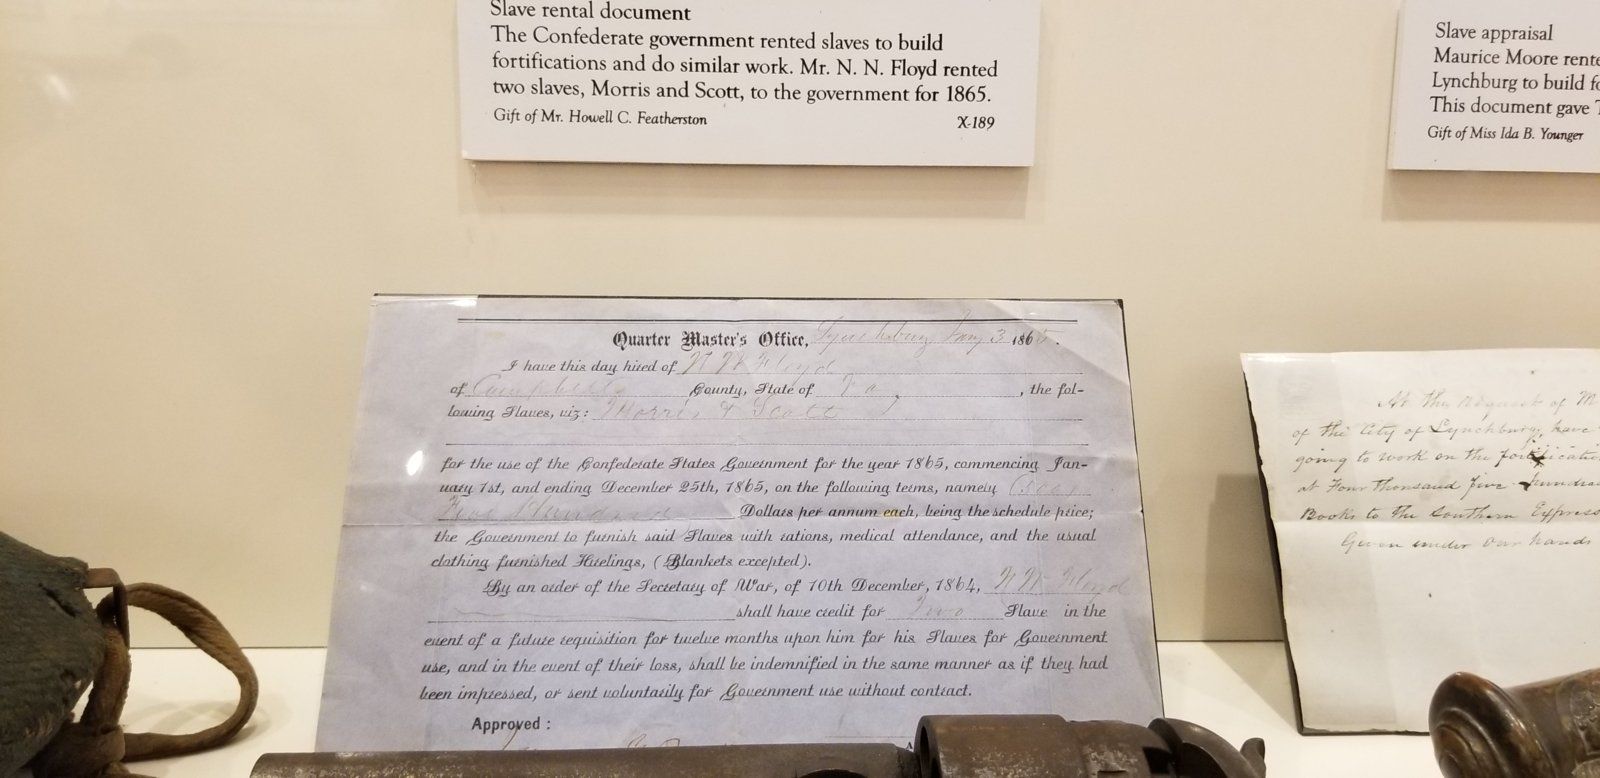 Slave rental document
The Confederate government rented slaves to build
fortifications and do similar work. Mr. N. N. Floyd rented
two slaves, Morris and Scott, to the government for 1865.
Gift of Mr. Howell C. Featherston X-189
Slave appraisal
Maurice Moore rente
Lynchburg to build fo
This document gave
Gift of Miss Ida B. Younger
Quarter Master's Office, Lynchburg Jany 3 1865.
I have this day hired of N N Floyd
of Campbell County, State of Va, the fol-
lowing Slaves, viz: Morris & Scott
for the use of the Confederate States Government for the year 1865, commencing Jan-
uary 1st, and ending December 25th, 1865, on the following terms, namely
Five Hundred Dollars per annum each, being the schedule price;
the Government to furnish said Slaves with rations, medical attendance, and the usual
clothing furnished Hirelings, (Blankets excepted).
By an order of the Secretary of War, of 10th December, 1864, N N Floyd
shall have credit for Two Slave in the
event of a future requisition for twelve months upon him for his Slaves for Government
use, and in the event of their loss, shall be indemnified in the same manner as if they had
been impressed, or sent voluntarily for Government use without contract.
Approved :
At the Request of M
of the City of Lynchburg, have
going to work on the fortificatio
at Four thousand five hundred
Books to the Southern Express
Given under our hands